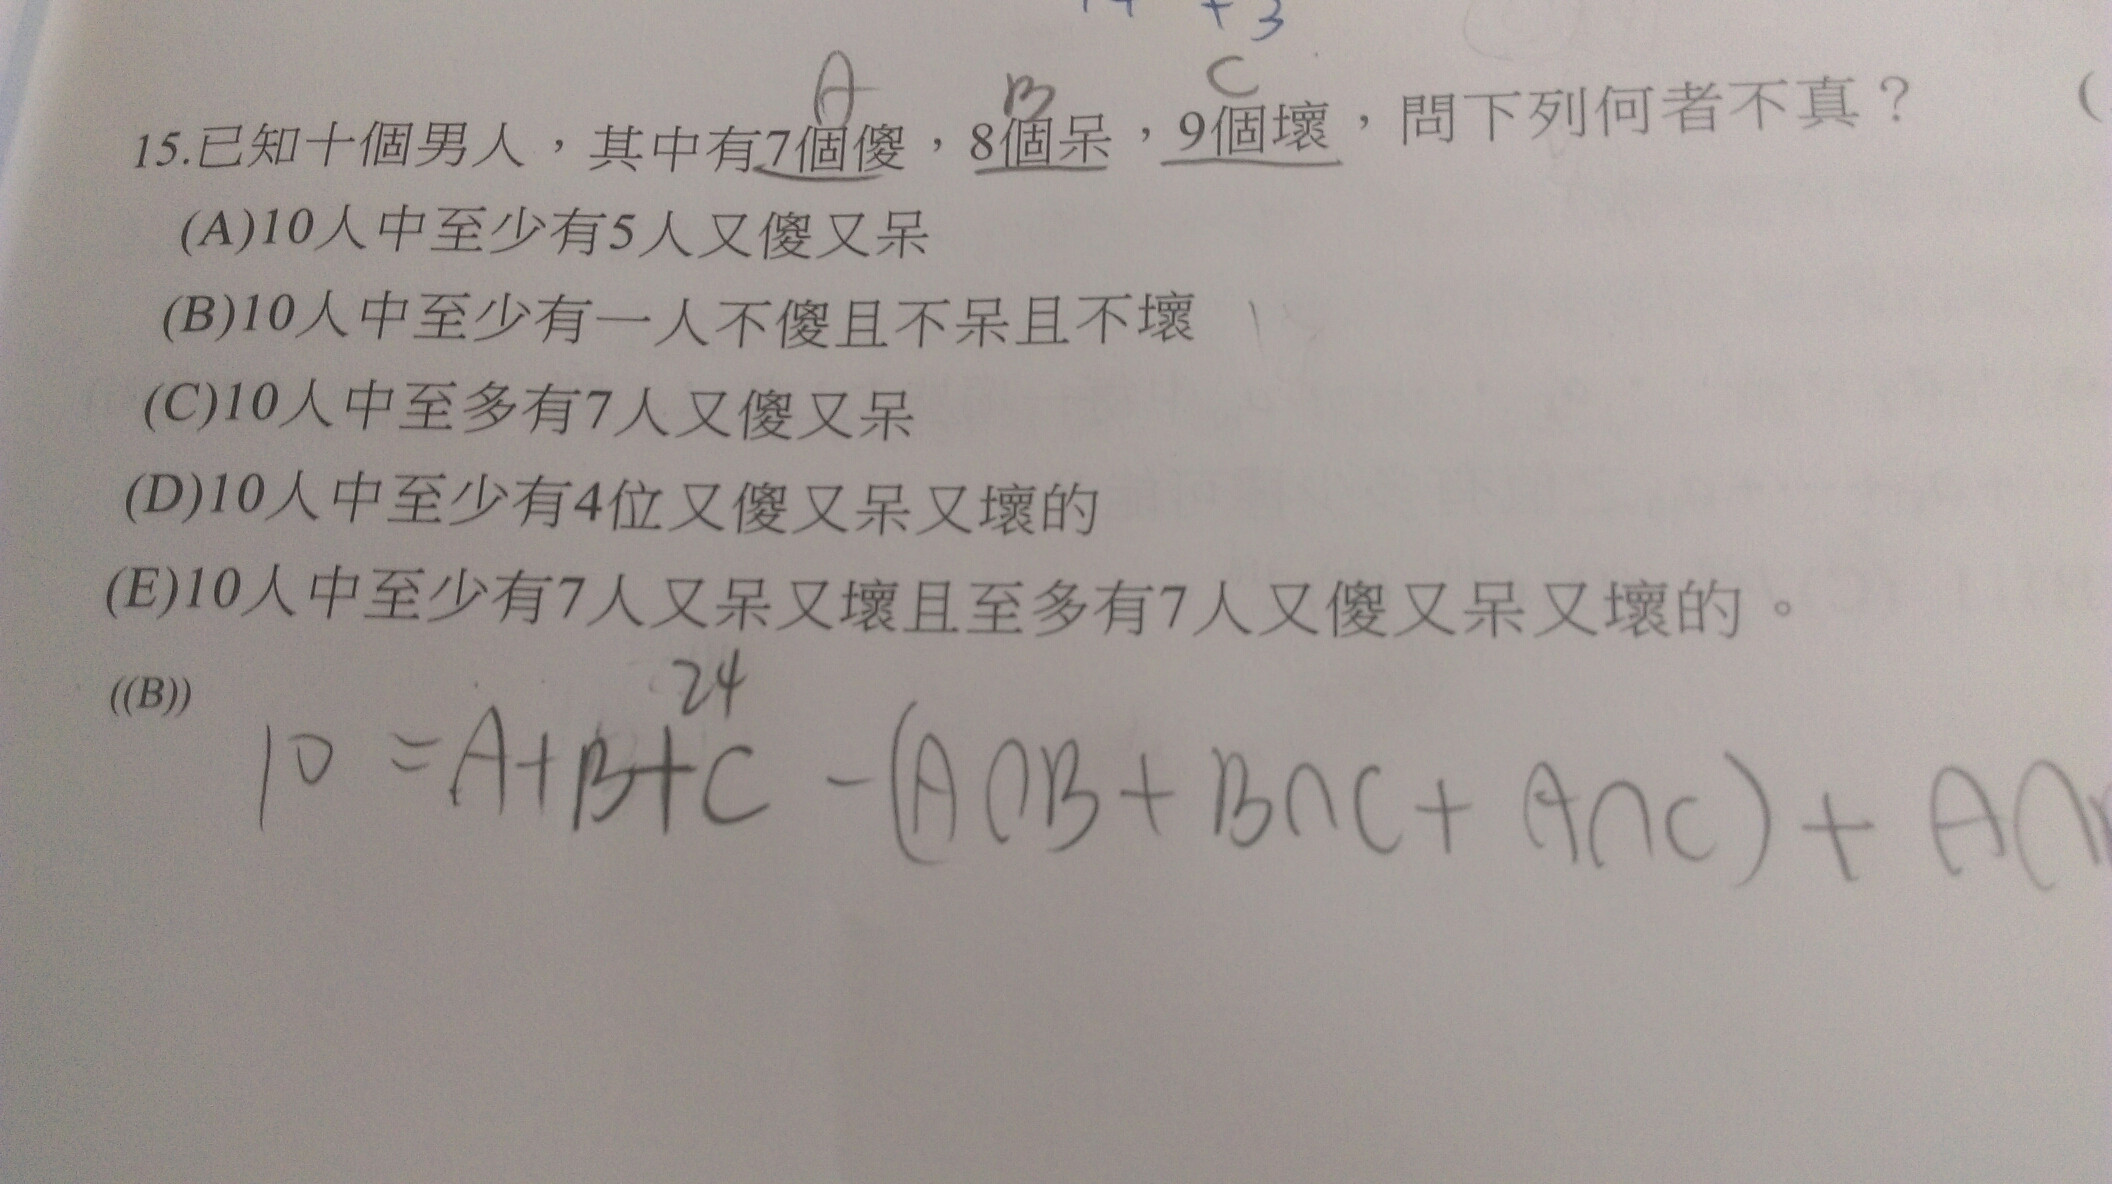 +3
A B C
15.已知十個男人，其中有7個傻，8個呆，9個壞，問下列何者不真？ (
(A)10人中至少有5人又傻又呆
(B)10人中至少有一人不傻且不呆且不壞
(C)10人中至多有7人又傻又呆
(D)10人中至少有4位又傻又呆又壞的
(E)10人中至少有7人又呆又壞且至多有7人又傻又呆又壞的。
((B))
24
10 = A+B+C - (A∩B + B∩C + A∩C) + A∩